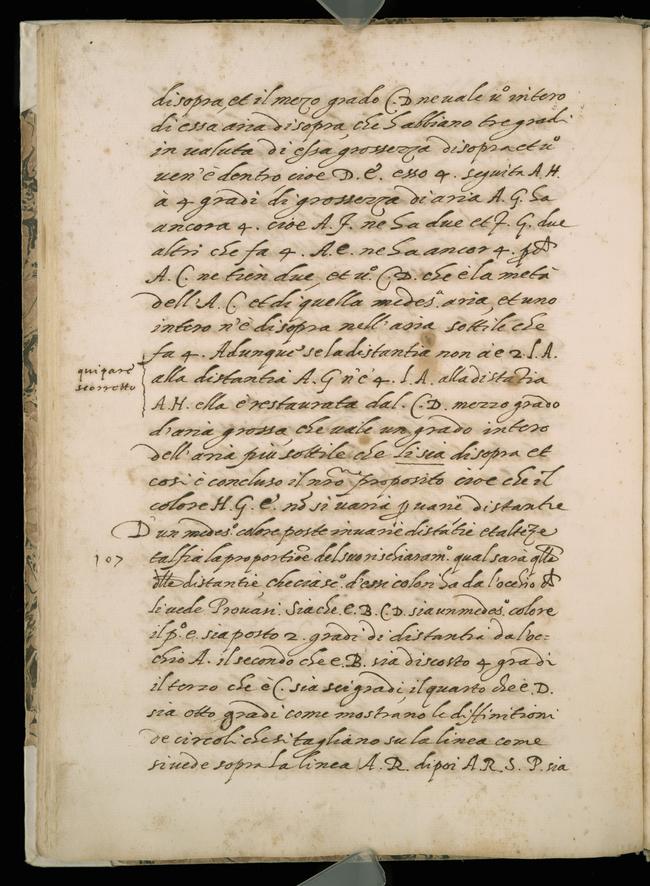 disopra et il mezo grado C.D ne uale u.o intero
di essa aria disopra, che habbiano tre gradi
in ualuta di essa grossezza disopra et u.o
uen'è dentro cioe D.E. esso 4. seguita A.H.
à 4 gradi di grossezza di aria A.G. ha
ancora 4. cioe A.F. ne ha due et F.G. due
altri che fa 4. A.e. ne ha ancor 4.
A.C. ne tien due, et u.o C.D. che è la metà
dell'A.C. et di quella medes.a aria, et uno
intero n'è disopra nell'aria sottile che
fa 4. Adunque se la distantia non à e 2. l.A.
qui pare
scorretto
alla distantia A.G n'è 4. l.A. alla distãtia
A.H. ella è restaurata dal. C.D. mezzo grado
d'aria grossa, che uale un grado intero
dell'aria più sottile che li sia disopra et
cosi è concluso il nr̃o proposito cioe che il
colore H.G.E. nõ si uaria p uarie distantie
D'un medes.o colore poste in uarie distãtie et altezze
107
tal fia la proportioẽ del suo rischiaram.o qual sarà q̃lla
delle distantie che ciasc.o d'essi colori ha da l'occhio
li uede Prouasi. Sia che. e. B. C. D. sia un medes.o colore
il p.o e. sia posto 2. gradi di distantia da l'oc=
chio A. il secondo che e. B. sia discosto 4 gradi
il terzo che è C. sia sei gradi, il quarto che è. D.
sia otto gradi come mostrano le diffinitioni
de circoli che si tagliano su la linea come
si uede sopra la linea A.R. di poi A.R.S.P. sia